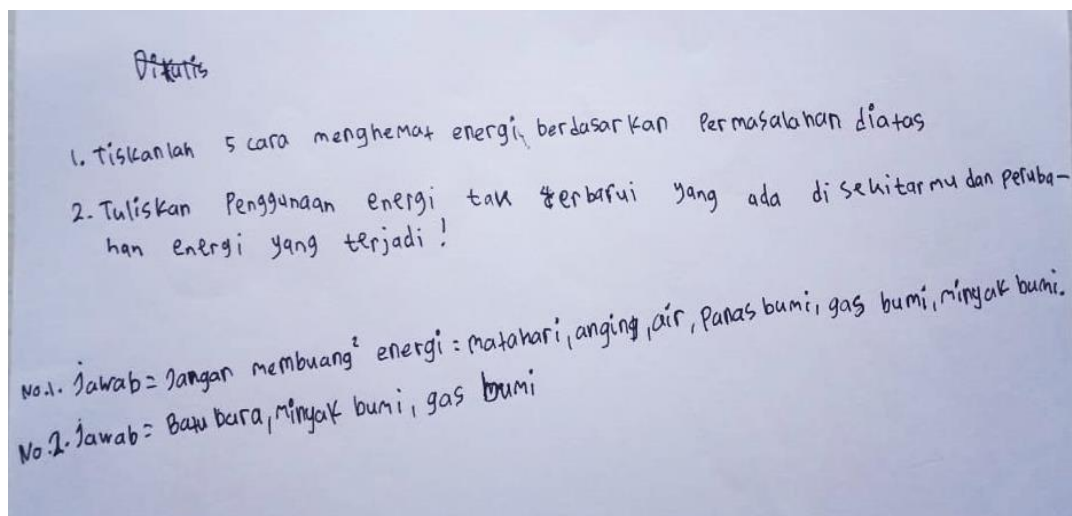 Ditulis
1. Tiskanlah 5 cara menghemat energi, berdasarkan Permasalahan diatas
2. Tuliskan Penggunaan energi tak terbarui yang ada di sekitarmu dan peruba-
han energi yang terjadi!
No.1. Jawab = Jangan membuang² energi : matahari, anging, air, Panas bumi, gas bumi, minyak bumi.
No.2. Jawab = Batu bara, minyak bumi, gas bumi